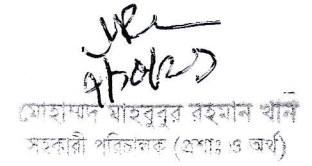 মোহাম্মদ মাহবুবুর রহমান খান
সহকারী পরিচালক (প্রশাঃ ও অর্থ)